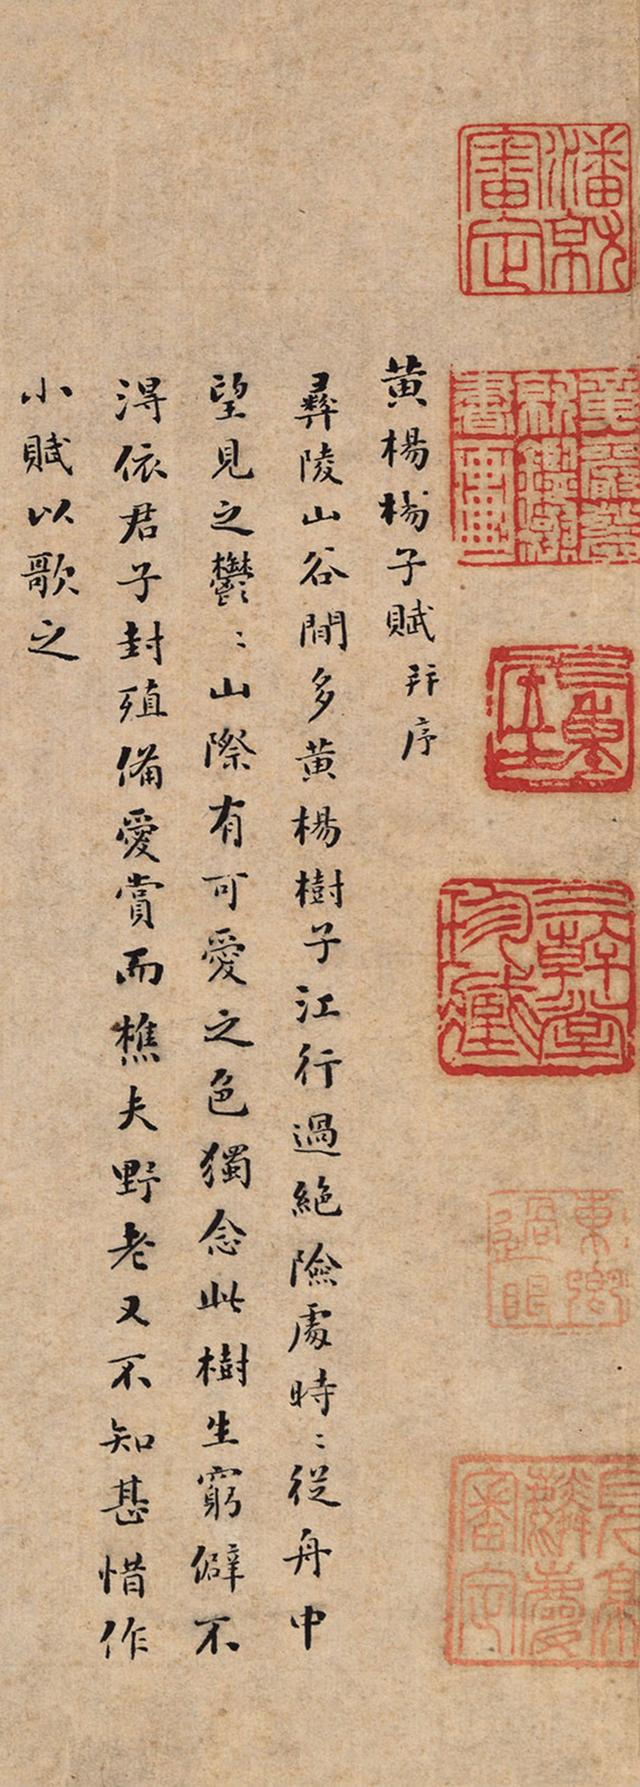 東卿過眼
黄楊樹子賦 并序
彝陵山谷間多黄楊樹子江行過絶險處時〻從舟中
望見之鬱〻山際有可愛之色獨念此樹生窮僻不
得依君子封殖備愛賞而樵夫野老又不知甚惜作
小賦以歌之